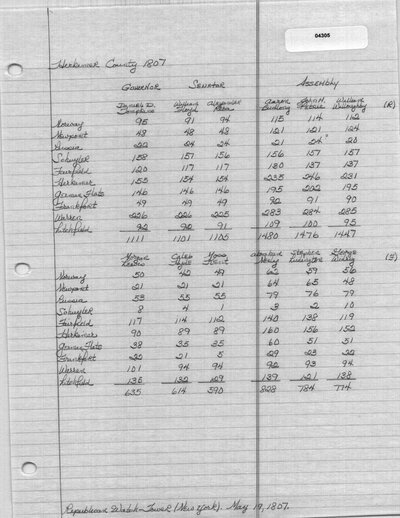 04305
Herkimer County 1807
GOVERNOR SENATOR ASSEMBLY
Daniel D. Tompkins Alexander Aaron John M. Petrie William (R)
Norway 95 91 94 115 114 112
Newport 48 48 48 121 121 124
Russia 22 24 24 21 24 20
Schuyler 158 157 156 156 157 157
Fairfield 120 117 117 130 137 137
Herkimer 155 154 154 235 246 231
German Flats 146 146 146 195 202 195
Frankfort 49 49 49 92 91 90
Warren 226 226 225 283 284 285
Litchfield 92 92 91 109 100 95
1111 1101 1105 1480 1476 1447
Morgan Lewis Caleb Moss Kent Stephen George (F)
Norway 50 42 49 62 59 56
Newport 21 21 21 64 65 48
Russia 53 55 55 79 76 79
Schuyler 8 4 1 3 2 10
Fairfield 117 114 112 140 138 119
Herkimer 90 89 89 160 156 152
German Flats 38 35 35 60 51 51
Frankfort 20 21 5 29 23 22
Warren 101 94 94 92 93 94
Litchfield 135 132 129 139 121 138
635 614 590 828 784 774
Republican Watch-Tower (New York). May 19, 1807.